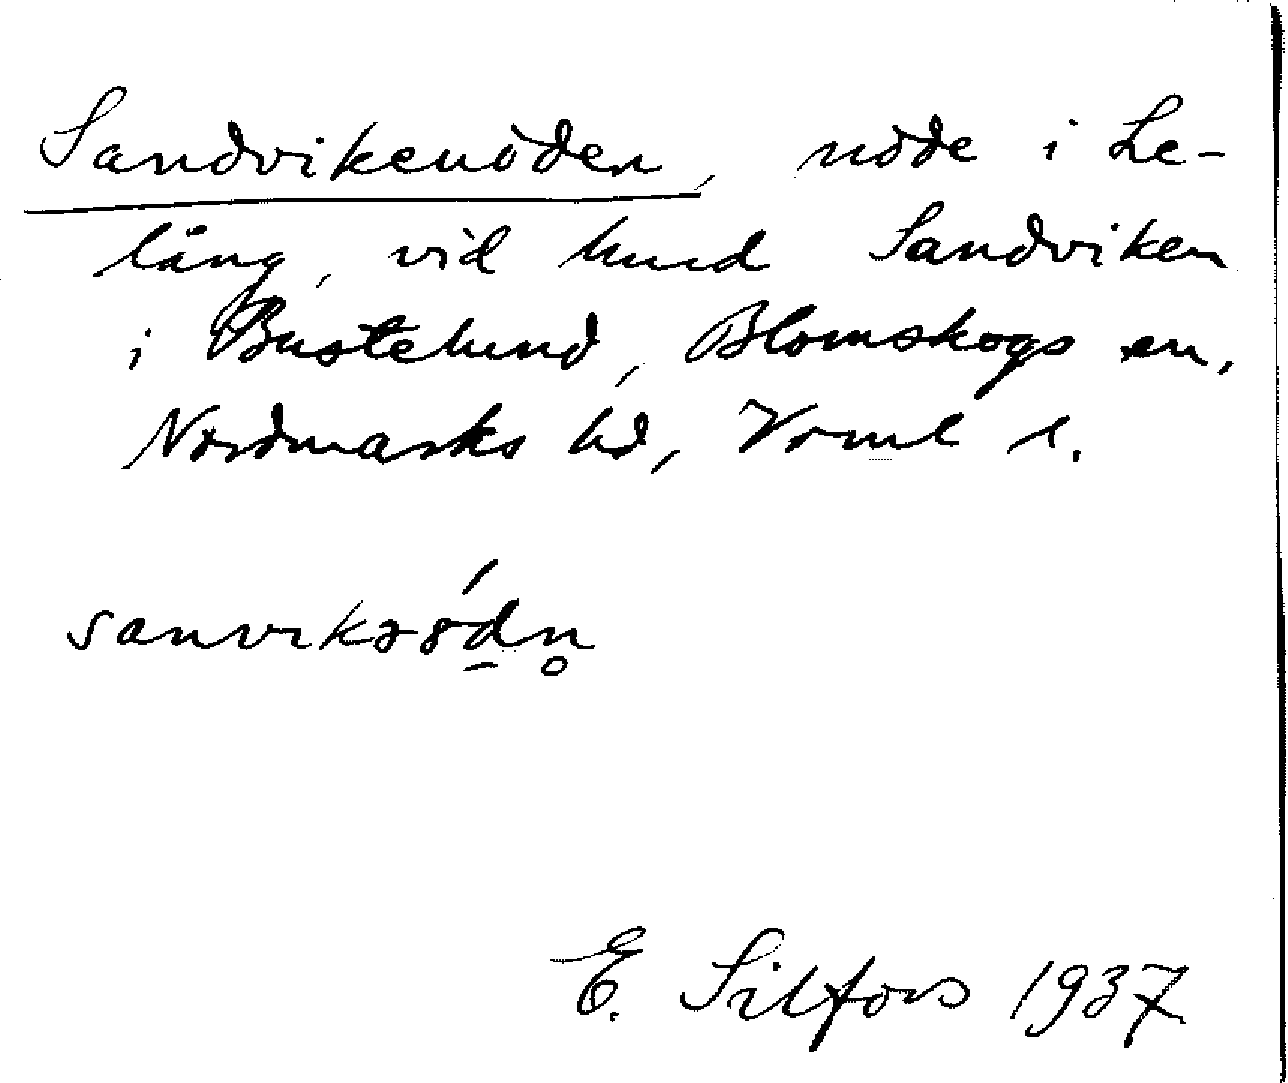 Sandvikeröden, röde i Le-
lång, vid hmd Sandviken
i Bastelund, Blomskogs sn,
Nordmarks hd, Värml l.
E. Silfors 1937